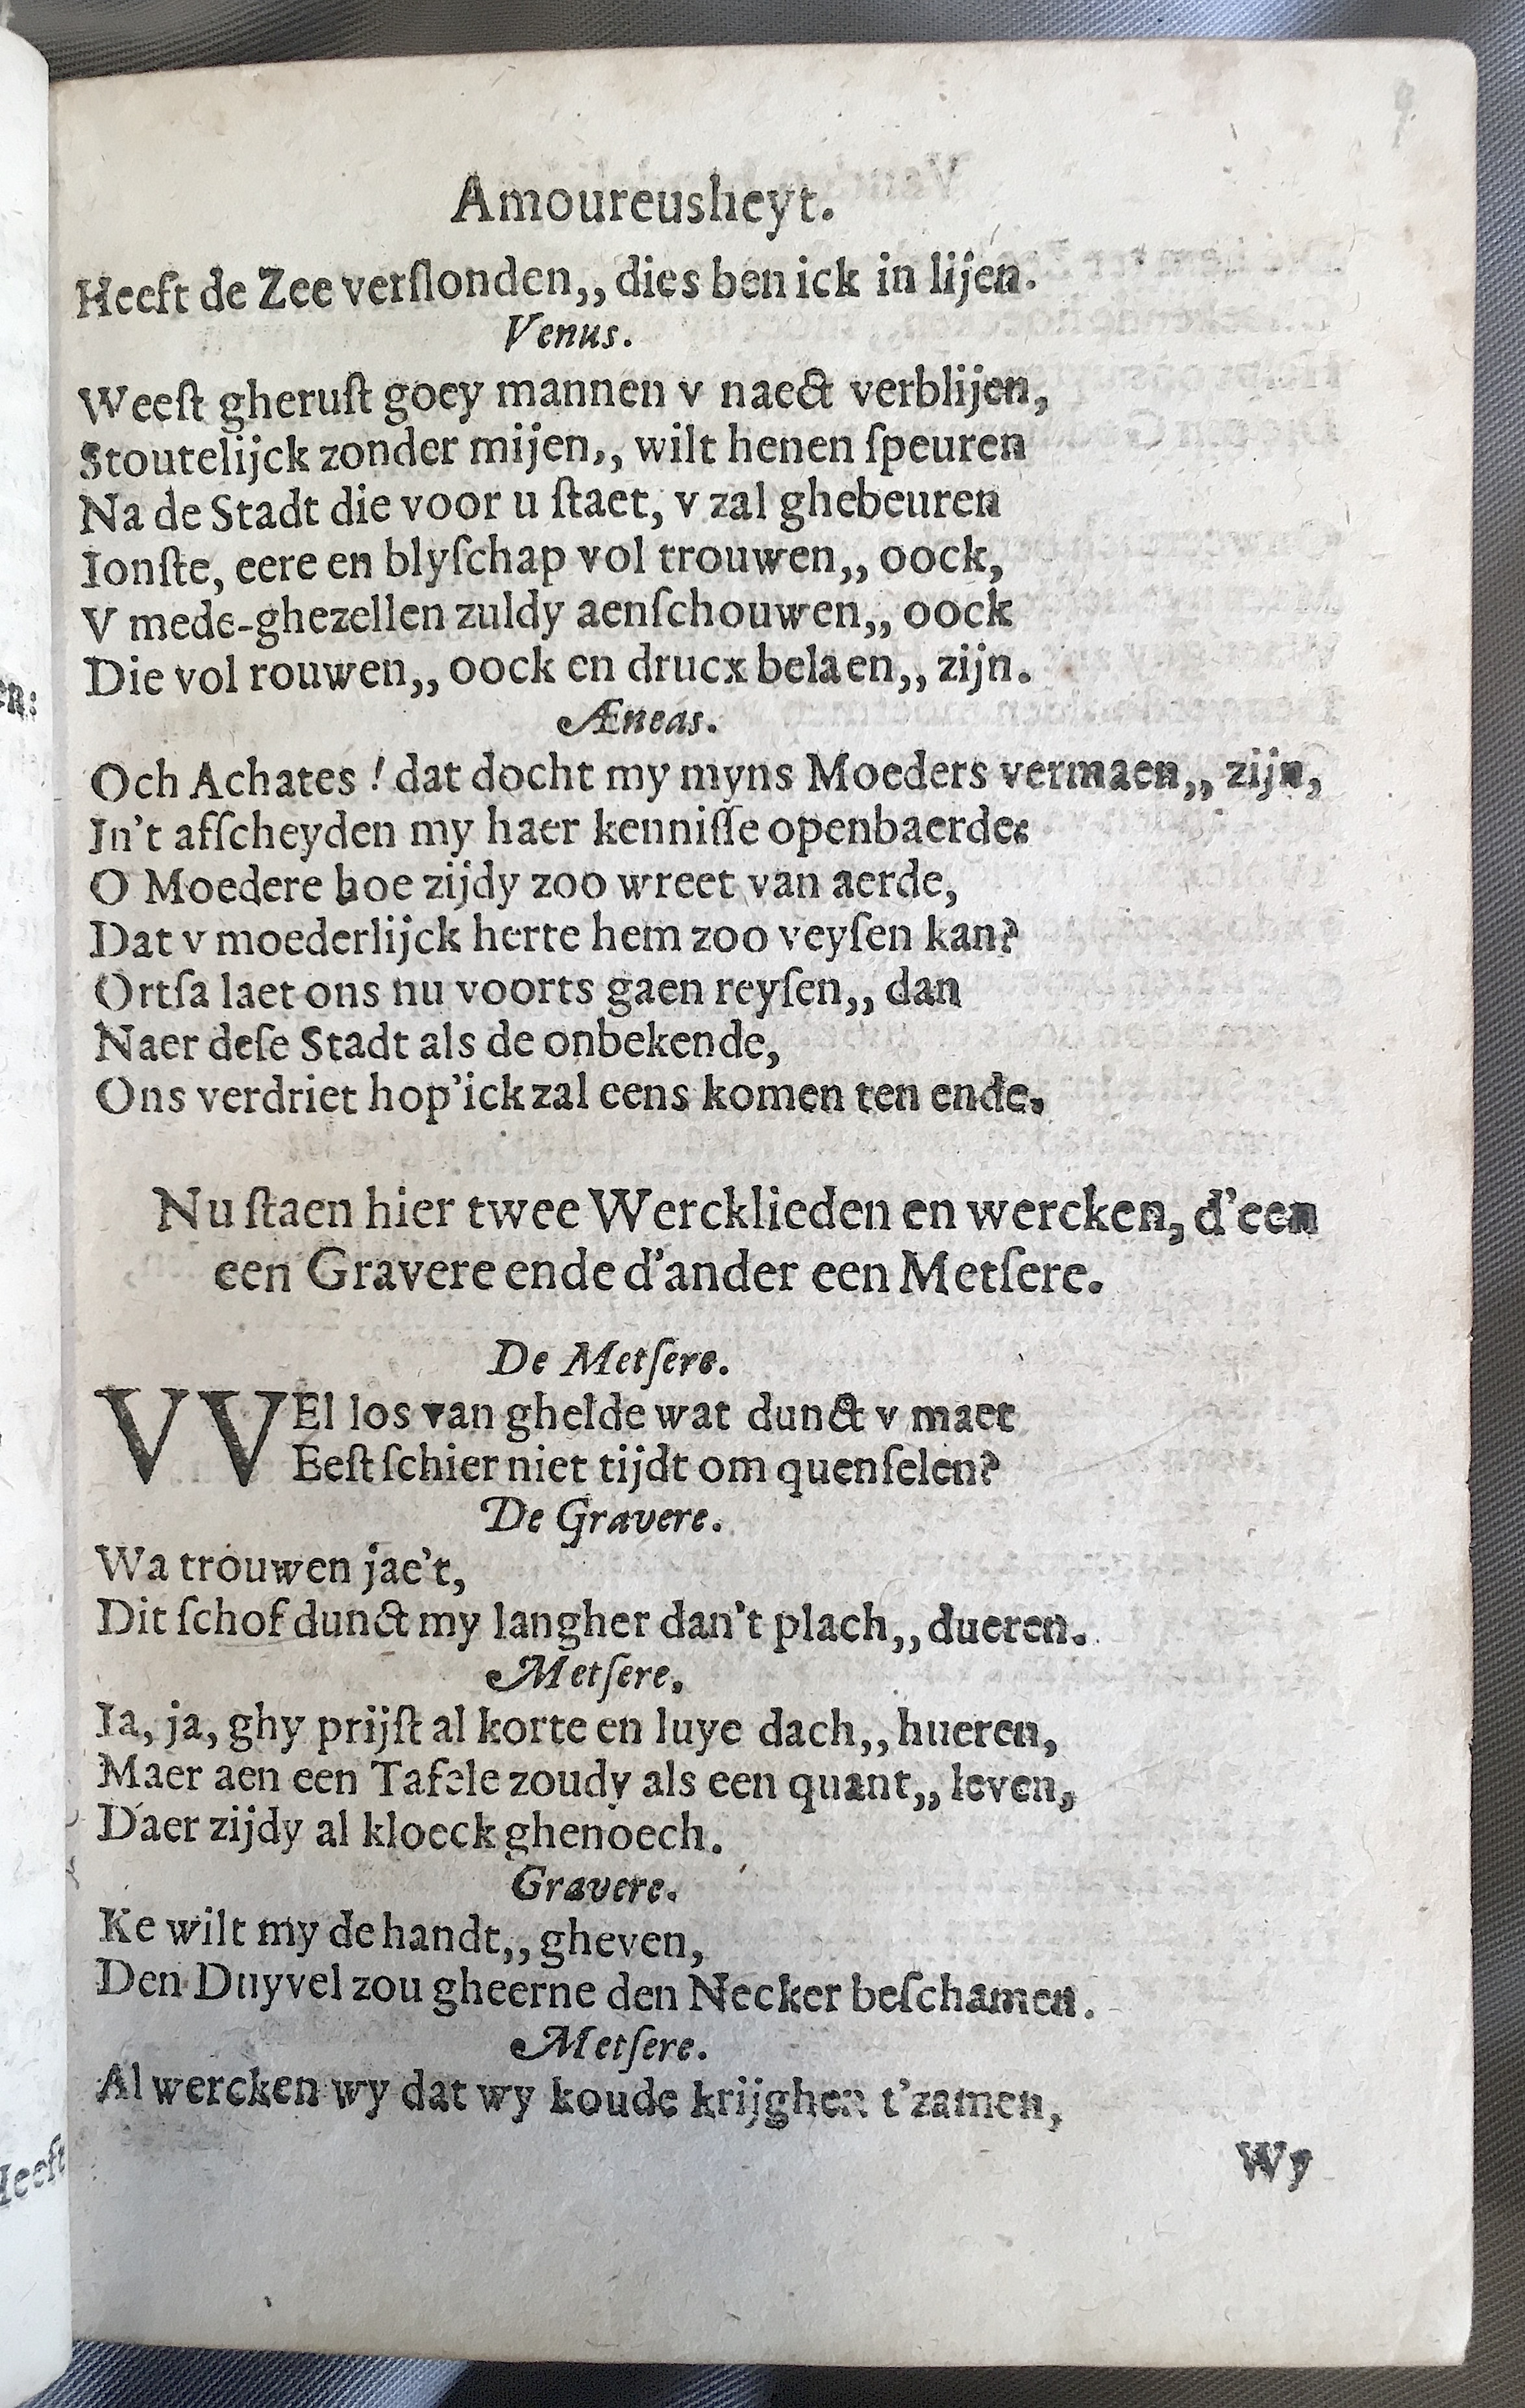 Amoureusheyt.
Heeft de Zee verſlonden,, dies ben ick in lijen.
Venus.
Weeſt gheruſt goey mannen v naect verblijen,
Stoutelijck zonder mijen,, wilt henen ſpeuren
Na de Stadt die voor u ſtaet, v zal ghebeuren
Ionſte, eere en blyſchap vol trouwen,, oock,
V mede-ghezellen zuldy aenſchouwen,, oock
Die vol rouwen,, oock en drucx belaen,, zijn.
Æneas.
Och Achates ! dat docht my myns Moeders vermaen,, zijn,
In't afſcheyden my haer kenniſſe openbaerde:
O Moedere hoe zijdy zoo wreet van aerde,
Dat v moederlijck herte hem zoo veyſen kan?
Ortſa laet ons nu voorts gaen reyſen,, dan
Naer deſe Stadt als de onbekende,
Ons verdriet hop'ick zal eens komen ten ende.
Nu ſtaen hier twee Wercklieden en wercken, d'een
een Gravere ende d'ander een Metſere.
De Metſere.
VVEl los van ghelde wat dunct v maet
Eeſt ſchier niet tijdt om quenſelen?
De Gravere.
Wa trouwen jae't,
Dit ſchof dunct my langher dan't plach,, dueren.
Metſere.
Ia, ja, ghy prijſt al korte en luye dach,, hueren,
Maer aen een Tafele zoudy als een quant,, leven,
Daer zijdy al kloeck ghenoech.
Gravere.
Ke wilt my de handt,, gheven,
Den Duyvel zou gheerne den Necker beſchamen.
Metſere.
Al wercken wy dat wy koude krijghen t'zamen,
Wy
en:
Heeft